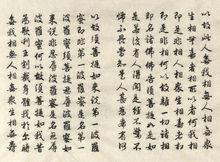 以故此人無我相無人相無眾
生相無壽者相所以者何我相
即是非相人相眾生相壽者相
即是非相何以故離一切諸相
即名諸佛佛告須菩提如是如
是若復有人得聞是經不驚不
怖不畏當知是人甚為希有何
以故須菩提如來說第一波羅
蜜即非第一波羅蜜是名第一
波羅蜜須菩提忍辱波羅蜜如
來說非忍辱波羅蜜是名忍辱
波羅蜜何以故須菩提如我昔
為歌利王割截身體我於爾時
無我相無人相無眾生相無壽